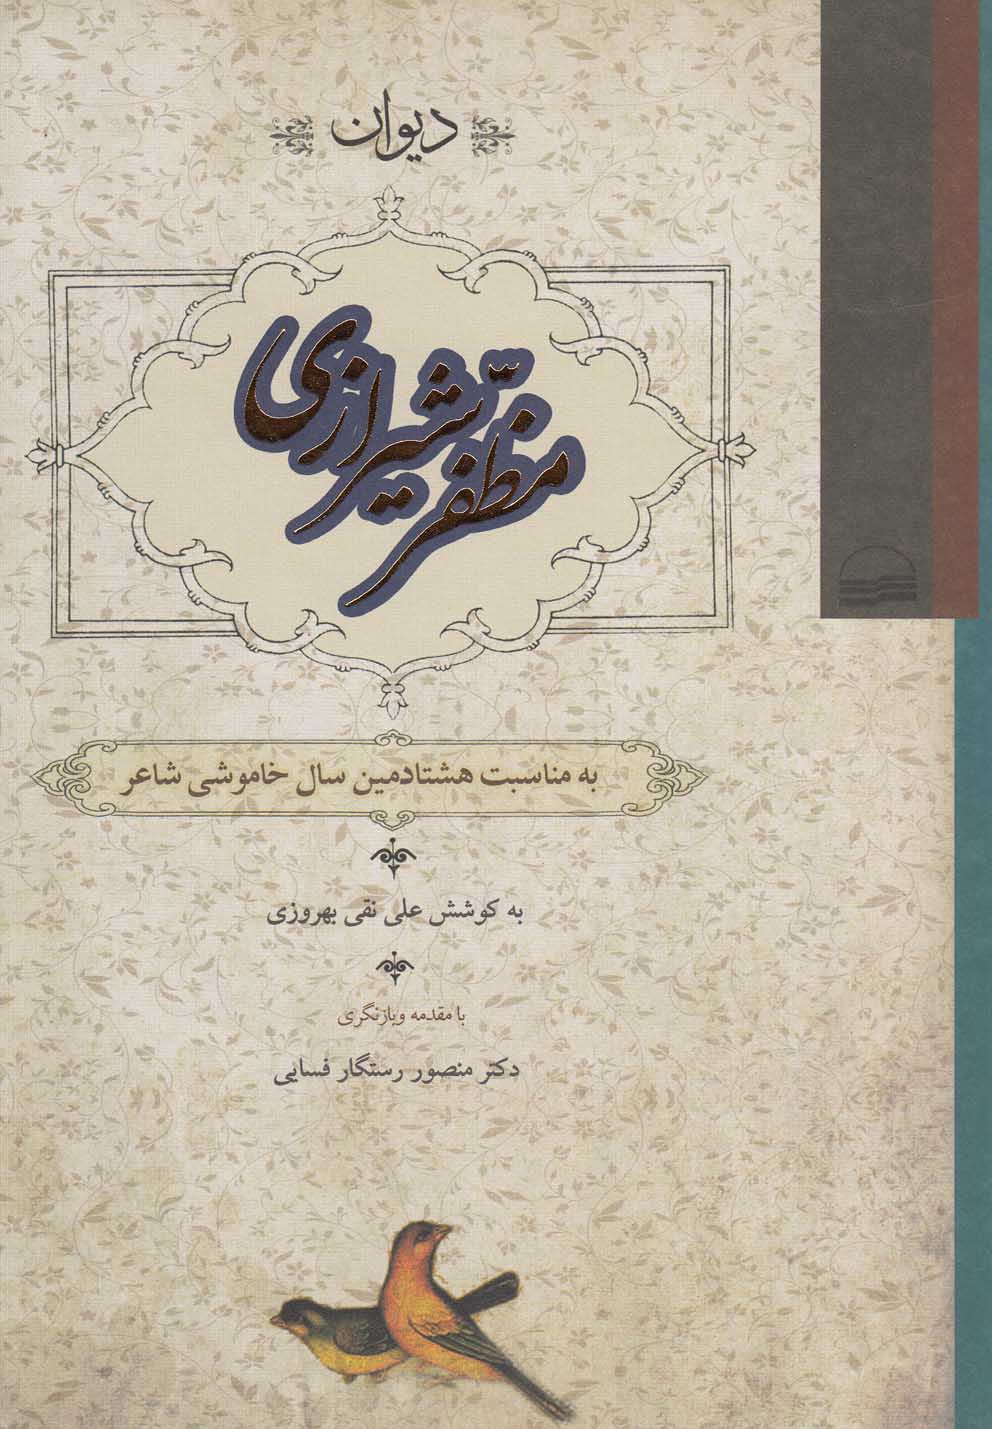 دیوان
مظفّر شیرازی
به مناسبت هشتادمین سال خاموشی شاعر
به کوشش علی نقی بهروزی
با مقدمه و بازنگری
دکتر منصور رستگار فسایی